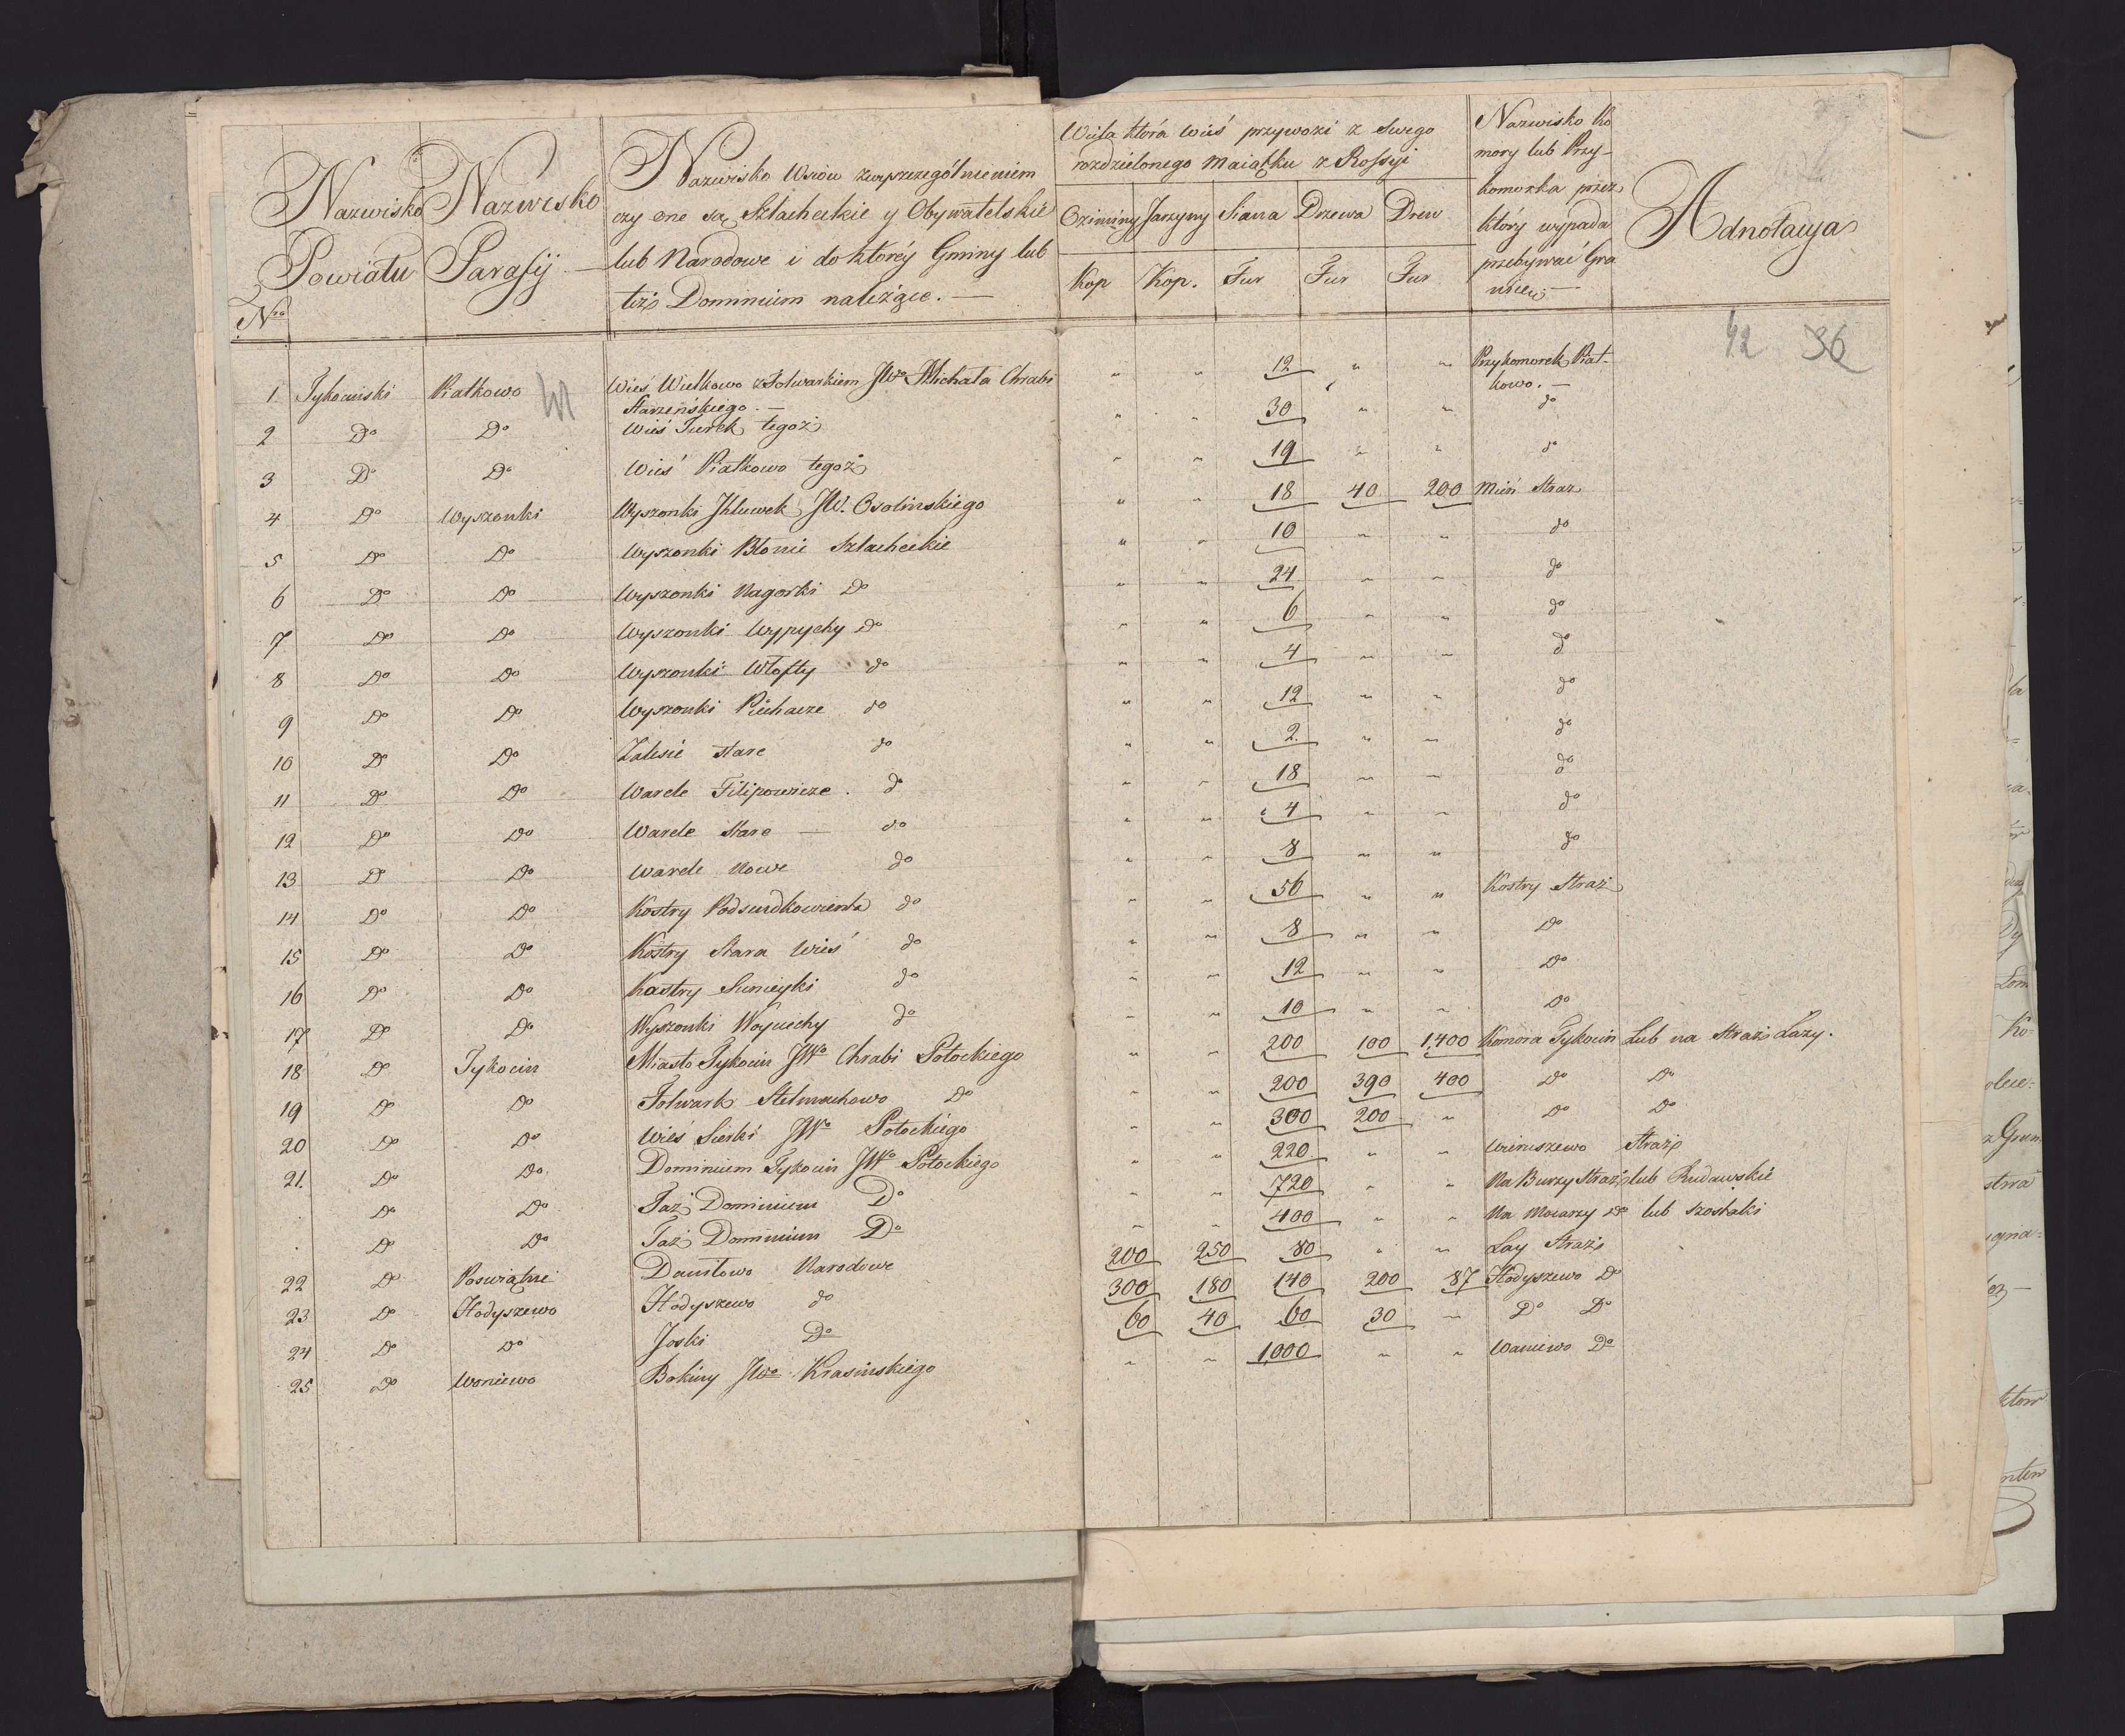 Nro
Nazwisko Powiatu
Nazwisko Parafij
Nazwisko Wsiów zwyszczegulnieniem
czy one są Szlacheckie y Obywatelskie
lub Narodowe i do którey Gminy lub
też Dominium należące. —
Wiela która wieś przywozi z swego
rozdzielonego maiątku z Rossyi
Oziminy Jarzyny Siana Drzewa Drew
Kop Kop. Fur Fur Fur
Nazwisko Ko
mory lub Przy-
komorka przez
który wypada
przebywać Gra
nicę —
Adnotacya
42 36
41
1. Tykocinski Piatkowo Wieś Wielkowo z Folwarkiem JWo Michała Chrabi „ „ 12 „ „ Przykomorek Piat-
Starzeńskiego. — kowo. —
2 Do Do Wieś Turek tegoż „ „ 30 „ „ do
3 Do Do Wieś Piatkowo tegoż „ „ 19 „ „ do
4 Do Wyszonki Wyszonki JW. Osolinskiego „ „ 18 40 200 Mień Straz
5 Do Do Wyszonki Błonie Szlacheckie „ „ 10 „ „ do
6 Do Do Wyszonki Nagorki Do „ „ 24 „ „ do
7 Do Do Wyszonki Wypychy Do „ „ 6 „ „ do
8 Do Do Wyszonki Włosty do „ „ 4 „ „ do
9 Do Do Wyszonki Piechacze do „ „ 12 „ „ do
10 Do Do Zalesie stare do „ „ 2. „ „ do
11 Do Do Warele Filipowicze. do „ „ 18 „ „ do
12 Do Do Warele Stare — do „ „ 4 „ „ do
13 Do Do Warele Nowe do „ „ 8 „ „ do
14 Do Do Kostry Podsendkowienta do „ „ 56 „ „ Kostry Straż
15 Do Do Kostry Stara Wieś do „ „ 8 „ „ Do
16 Do Do Kostry Smieyki do „ „ 12 „ „ Do
17 Do Do Wyszonki Woyciechy do „ „ 10 „ „ Do
18 Do Tykocin Miasto Tykocin JWo Chrabi Potockiego „ „ 200 100 1,400 Komora Tykocin Lub na Straż Łazy.
19 Do Do Folwark Stelmachowo Do „ „ 200 390 400 Do Do
20 Do Do Wieś Sierki JWo Potockiego „ „ 300 200 „ Do Do
21. Do Do Dominium Tykocin JWo Potockiego „ „ 220 „ „ Wieruszewo Straż
Do Do Taż Dominium Do „ „ 720 „ „ Na Burzy Straż lub Rudawskie
Do Do Taż Dominium Do „ „ 400 „ „ Na Mocarzy Do lub Szostaki
22 Do Poswiątne Daniłowo Narodowe 200 250 80 „ „ Łay Straż
23 Do Hodyszewo Hodyszewo do 300 180 140 200 87 Hodyszewo Do
24 Do Do Joski Do 60 40 60 30 „ Do Do
25 Do Waniewo Bokiny JWo Krasinskiego „ „ 1,000 „ „ Waniewo Do